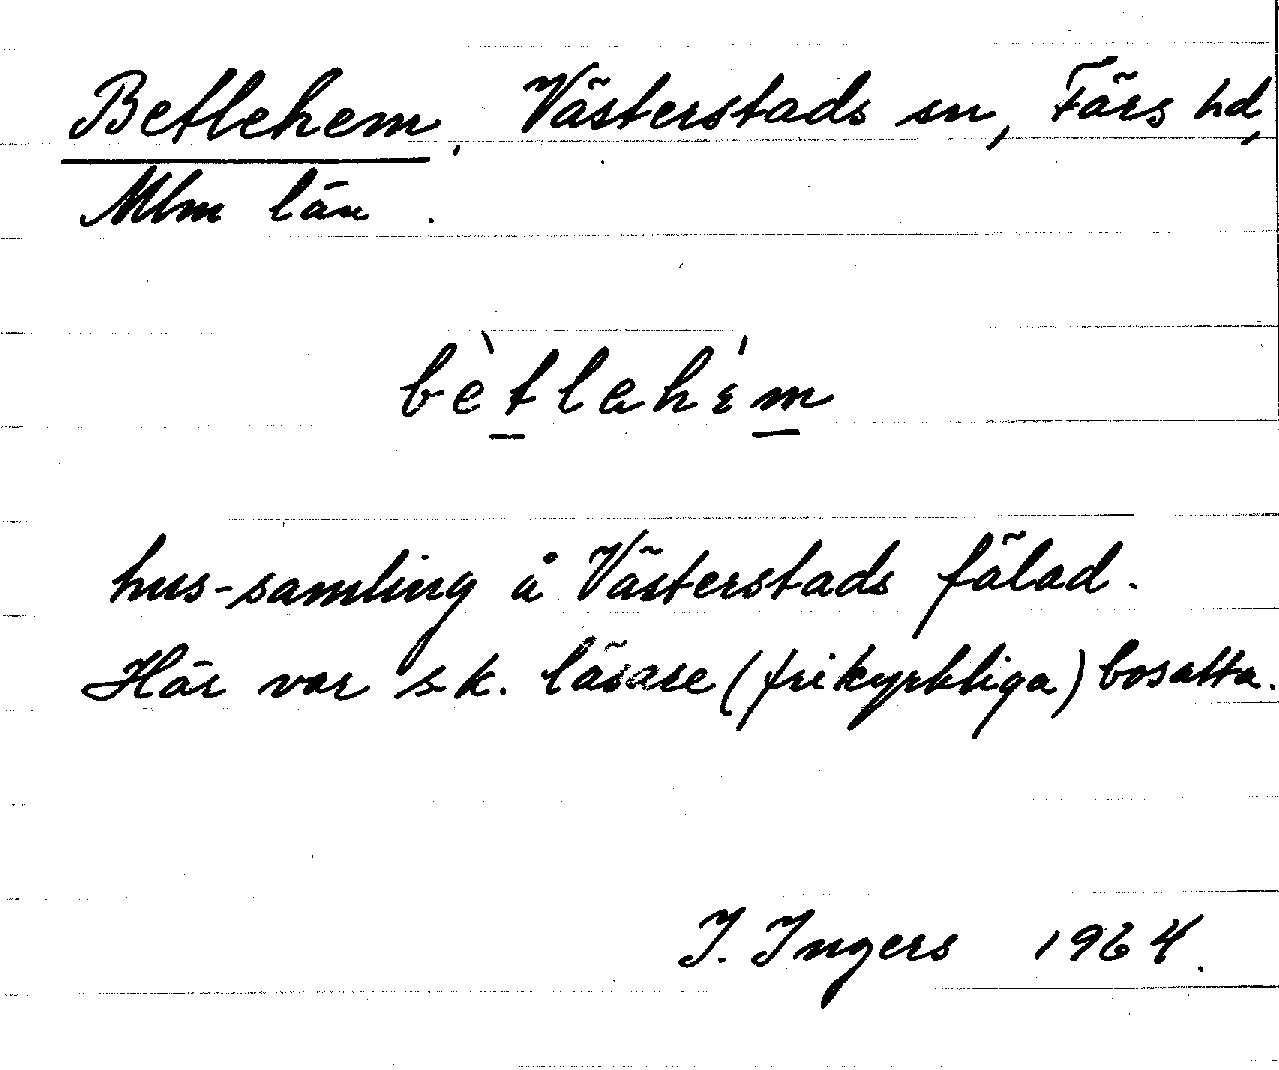 Betlehem, Västerstads sn, Färs hd,
Mlm län.
bètlehém
hus-samling å Västerstads fälad.
Här var s.k. läsare (frikyrkliga) bosatta.
I. Ingers 1964.